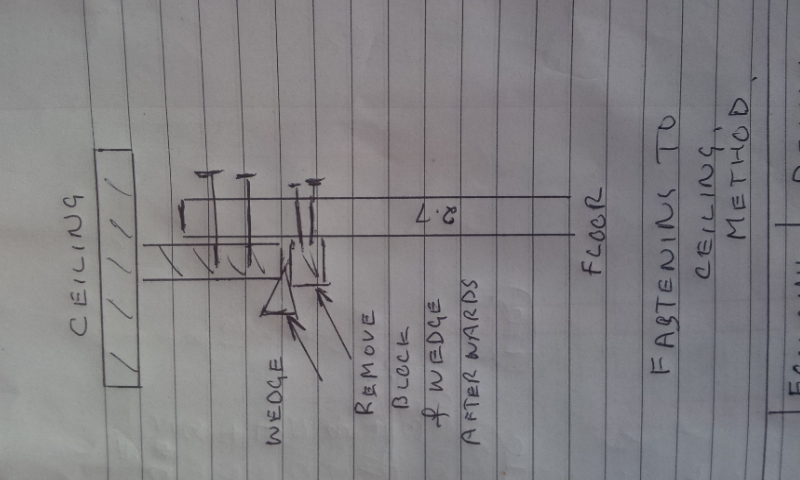 CEILING
WEDGE
REMOVE
BLOCK
& WEDGE
AFTERWARDS
2.7
FLOOR
FASTENING TO
CEILING.
METHOD.